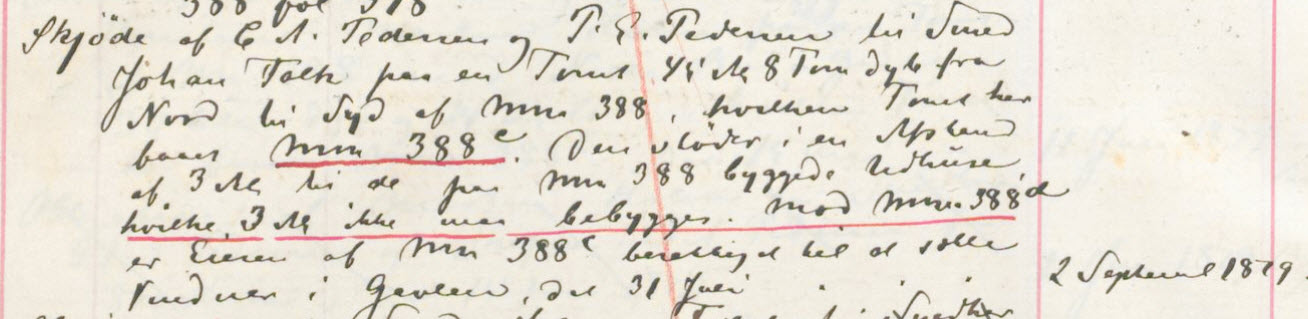 388 fol 318
Skjöde af C A. Pedersen og P. E. Pedersen til Smed
Johan Falk paa en Tomt 45 Al 8 Tom dyb fra
Nord til Syd af Mnr 388, hvilken Tomt her
baar Mnr 388 c. Den stöder i en Afstand
af 3 Al til de paa Mnr 388 byggede Udhuse
hvilke 3 Al ikke maa bebygges. Mod Mnr. 388 d
er Eieren af Mnr 388 c berettiget til at sætte
Vinduer i Gavlen, dat 31 Juli 2 September 1879.